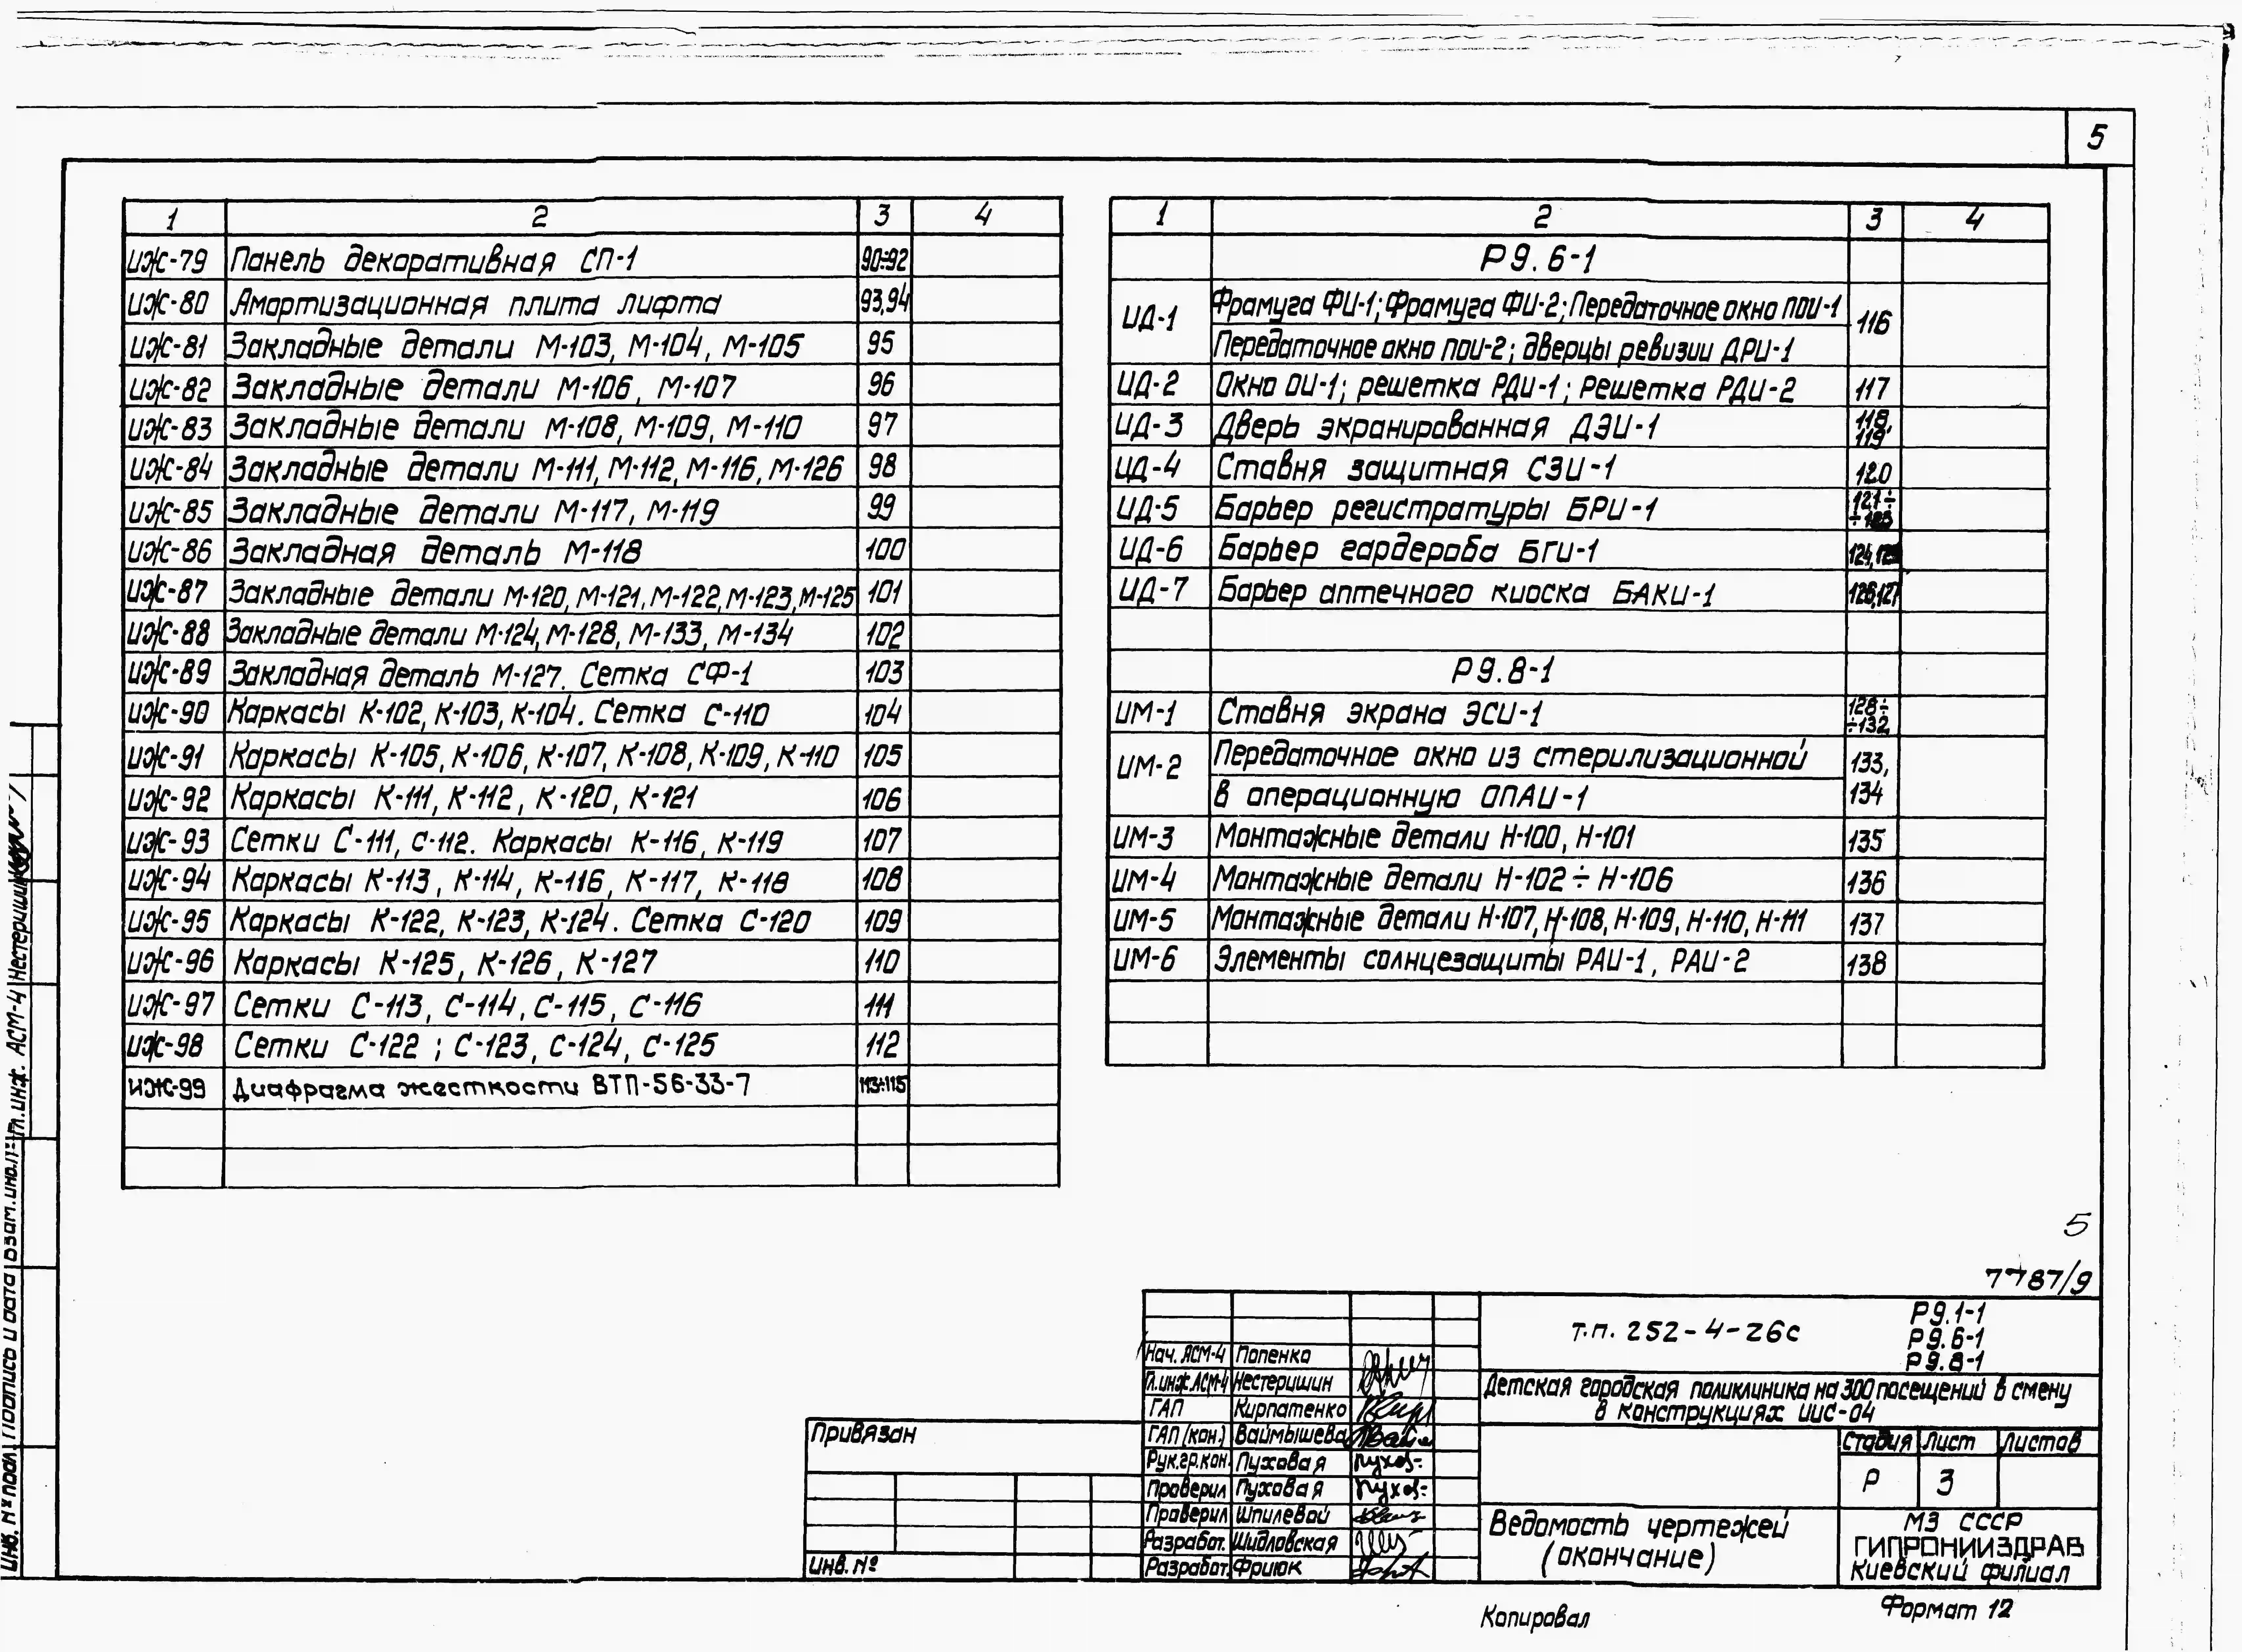 5
1 2 3 4
ИЖ-79 Панель декоративная СП-1 90÷92
ИЖ-80 Амортизационная плита лифта 93,94
ИЖ-81 Закладные детали М-103, М-104, М-105 95
ИЖ-82 Закладные детали М-106, М-107 96
ИЖ-83 Закладные детали М-108, М-109, М-110 97
ИЖ-84 Закладные детали М-111, М-112, М-116, М-126 98
ИЖ-85 Закладные детали М-117, М-119 99
ИЖ-86 Закладная деталь М-118 100
ИЖ-87 Закладные детали М-120, М-121, М-122, М-123, М-125 101
ИЖ-88 Закладные детали М-124, М-128, М-133, М-134 102
ИЖ-89 Закладная деталь М-127. Сетка СФ-1 103
ИЖ-90 Каркасы К-102, К-103, К-104. Сетка С-110 104
ИЖ-91 Каркасы К-105, К-106, К-107, К-108, К-109, К-110 105
ИЖ-92 Каркасы К-111, К-112, К-120, К-121 106
ИЖ-93 Сетки С-111, С-112. Каркасы К-116, К-119 107
ИЖ-94 Каркасы К-113, К-114, К-116, К-117, К-118 108
ИЖ-95 Каркасы К-122, К-123, К-124. Сетка С-120 109
ИЖ-96 Каркасы К-125, К-126, К-127 110
ИЖ-97 Сетки С-113, С-114, С-115, С-116 111
ИЖ-98 Сетки С-122 ; С-123, С-124, С-125 112
ИЖ-99 Диафрагма жесткости ВТП-56-33-7 113÷115
1 2 3 4
Р9.6-1
ИД-1 Фрамуга ФИ-1; Фрамуга ФИ-2; Передаточное окно ПОИ-1 116
Передаточное окно ПОИ-2; дверцы ревизии ДРИ-1
ИД-2 Окно ОИ-1; решетка РДИ-1; Решетка РДИ-2 117
ИД-3 Дверь экранированная ДЭИ-1 118, 119
ИД-4 Ставня защитная СЗИ-1 120
ИД-5 Барьер регистратуры БРИ-1 121÷ ÷123
ИД-6 Барьер гардероба БГИ-1 124,125
ИД-7 Барьер аптечного киоска БАКИ-1 126,127
Р9.8-1
ИМ-1 Ставня экрана ЭСИ-1 128÷ ÷132
ИМ-2 Передаточное окно из стерилизационной 133,
в операционную ОПАИ-1 134
ИМ-3 Монтажные детали Н-100, Н-101 135
ИМ-4 Монтажные детали Н-102 ÷ Н-106 136
ИМ-5 Монтажные детали Н-107, Н-108, Н-109, Н-110, Н-111 137
ИМ-6 Элементы солнцезащиты РАИ-1, РАИ-2 138
5
7787/9
т.п. 252-4-26с
Р9.1-1
Р9.6-1
Р9.8-1
Детская городская поликлиника на 300 посещений в смену
в конструкциях ИИС-04
Нач. АСМ-4 Попенко
Гл.инж АСМ-4 Нестеришин
ГАП Кирпатенко
ГАП (кон.) Ваймышева
Рук.гр.кон. Пуховая Пухов-
Проверил Пуховая Пухов-
Проверил Шпилевой
Разработ. Шидловская
Разработ. Фриюк
Привязан
Инв. №
Стадия Лист Листов
Р 3
Ведомость чертежей
(окончание)
МЗ СССР
ГИПРОНИИЗДРАВ
Киевский филиал
Копировал
Формат 12
Гл. инж. АСМ-4 Нестеришин
Инв. № подл. Подпись и дата Взам. инв. №